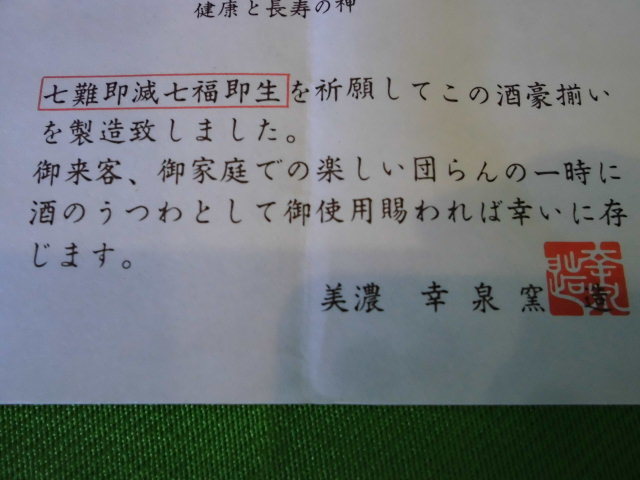 健康と長寿の神
七難即滅七福即生を祈願してこの酒豪揃い
を製造致しました。
御来客、御家庭での楽しい団らんの一時に
酒のうつわとして御使用賜われば幸いに存
じます。
美濃 幸泉窯 造